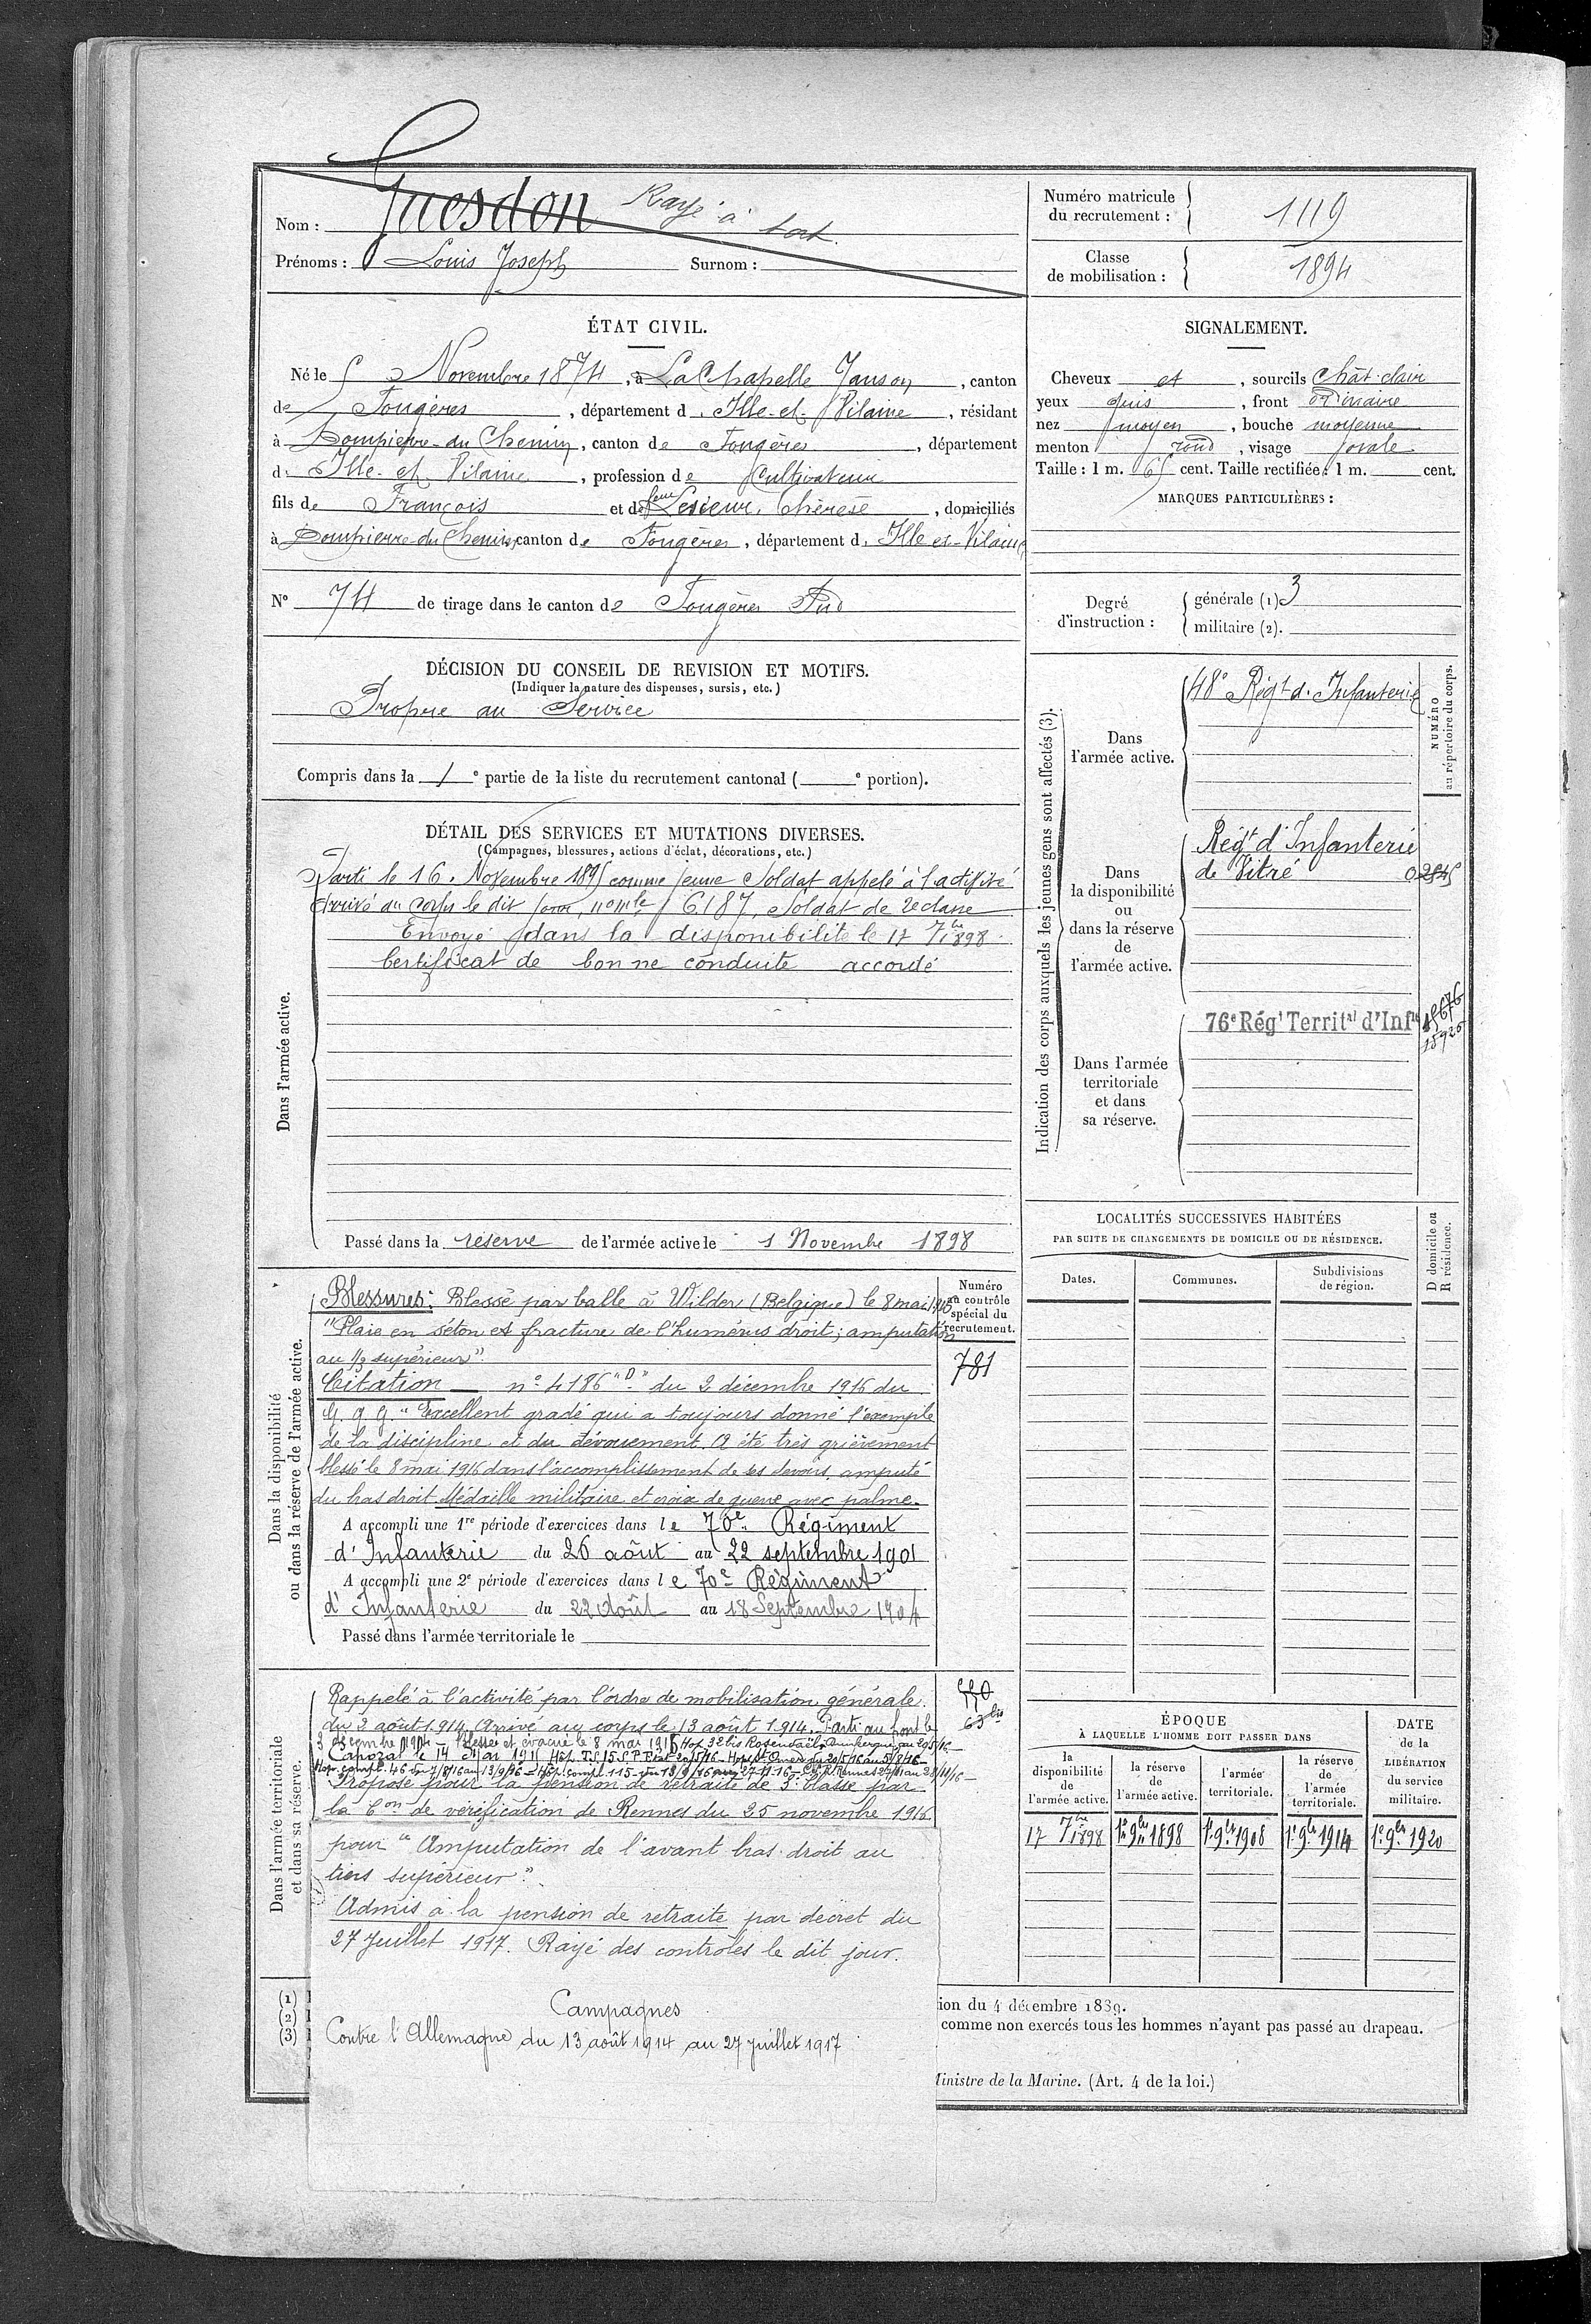 Nom : Guesdon Rayé à tort.
Prénoms : Louis Joseph Surnom :
Numéro matricule du recrutement : 1119
Classe de mobilisation : 1894
ÉTAT CIVIL.
Né le 5 Novembre 1874, à La Chapelle Janson, canton
de Fougères, département d. Ille-et-Vilaine, résidant
à Dompierre-du-Chemin, canton de Fougères, département
d. Ille-et-Vilaine, profession de Cultivateur
fils de François et de feue Lesieur, Thérèse, domiciliés
à Dompierre-du-Chemin, canton de Fougères, département d. Ille-et-Vilaine
N° 74 de tirage dans le canton de Fougères Sud
SIGNALEMENT.
Cheveux et, sourcils Chât. clair
yeux gris, front ordinaire
nez moyen, bouche moyenne
menton rond, visage ovale
Taille : 1 m. 65 cent. Taille rectifiée : 1 m. cent.
MARQUES PARTICULIÈRES :
Degré d'instruction :
générale (1) 3
militaire (2).
DÉCISION DU CONSEIL DE REVISION ET MOTIFS.
(Indiquer la nature des dispenses, sursis, etc.)
Propre au Service
Compris dans la 1e partie de la liste du recrutement cantonal ( e portion).
DÉTAIL DES SERVICES ET MUTATIONS DIVERSES.
(Campagnes, blessures, actions d'éclat, décorations, etc.)
Dans l'armée active.
Parti le 16 Novembre 1895 comme jeune Soldat appelé à l'activité
Arrivé au Corps le dit jour, no mle 6187, Soldat de 2e classe
Envoyé dans la disponibilité le 17 7bre 1898.
Certificat de bonne conduite accordé
Passé dans la réserve de l'armée active le 1 Novembre 1898
Indication des corps auxquels les jeunes gens sont affectés (3).
NUMÉRO
au répertoire du corps.
Dans
l'armée active.
48e Régt d. Infanterie
Dans
la disponibilité
ou
dans la réserve
de
l'armée active.
Régt d'Infanterie
de Vitré
Dans l'armée
territoriale
et dans
sa réserve.
76e Régt Territal d'Infie
LOCALITÉS SUCCESSIVES HABITÉES
PAR SUITE DE CHANGEMENTS DE DOMICILE OU DE RÉSIDENCE.
Dates.
Communes.
Subdivisions
de région.
D domicile ou
R résidence.
Dans la disponibilité
ou dans la réserve de l'armée active.
Numéro
au contrôle
spécial du
recrutement.
781
Blessures : Blessé par balle à Wilder (Belgique) le 8 mai 1916
"Plaie en séton et fracture de l'humérus droit ; amputation
au 1/3 supérieur".
Citation n° 4186 "D" du 2 décembre 1916 du
G. Q. G. "Excellent gradé qui a toujours donné l'exemple
de la discipline et du dévouement. A été très grièvement
blessé le 8 mai 1916 dans l'accomplissement de ses devoirs. amputé
du bras droit. Médaille militaire et croix de guerre avec palme.
A accompli une 1re période d'exercices dans le 70e Régiment
d'Infanterie du 26 août au 22 septembre 1901
A accompli une 2e période d'exercices dans le 70e Régiment
d'Infanterie du 22 Août au 18 Septembre 1904
Passé dans l'armée territoriale le
Dans l'armée territoriale
et dans sa réserve.
Rappelé à l'activité par l'ordre de mobilisation générale
du 2 août 1914. Arrivé au corps le 13 août 1914. Parti au front le
3 décembre 1914. Blessé et évacué le 8 mai 1916 Hop. 32 bis Rosendaël Dunkerque au 20/5/16
Caporal le 14 Mai 1915
Proposé pour la pension de retraite de 5e classe par
la Con de vérification de Rennes du 25 novembre 1916
pour "Amputation de l'avant bras droit au
tiers supérieur".
Admis à la pension de retraite par décret du
27 Juillet 1917. Rayé des contrôles le dit jour.
Campagnes
Contre l'Allemagne du 13 août 1914 au 27 juillet 1917
63 bis
ÉPOQUE
À LAQUELLE L'HOMME DOIT PASSER DANS
DATE
de la
LIBÉRATION
du service
militaire.
la
disponibilité
de
l'armée active.
la réserve
de
l'armée active.
l'armée
territoriale.
la réserve
de
l'armée
territoriale.
17 7bre 1898 1er 9bre 1898 1er 9bre 1908 1er 9bre 1914 1er 9bre 1920
(1)
(2)
(3)
ion du 4 décembre 1889.
comme non exercés tous les hommes n'ayant pas passé au drapeau.
Ministre de la Marine. (Art. 4 de la loi.)